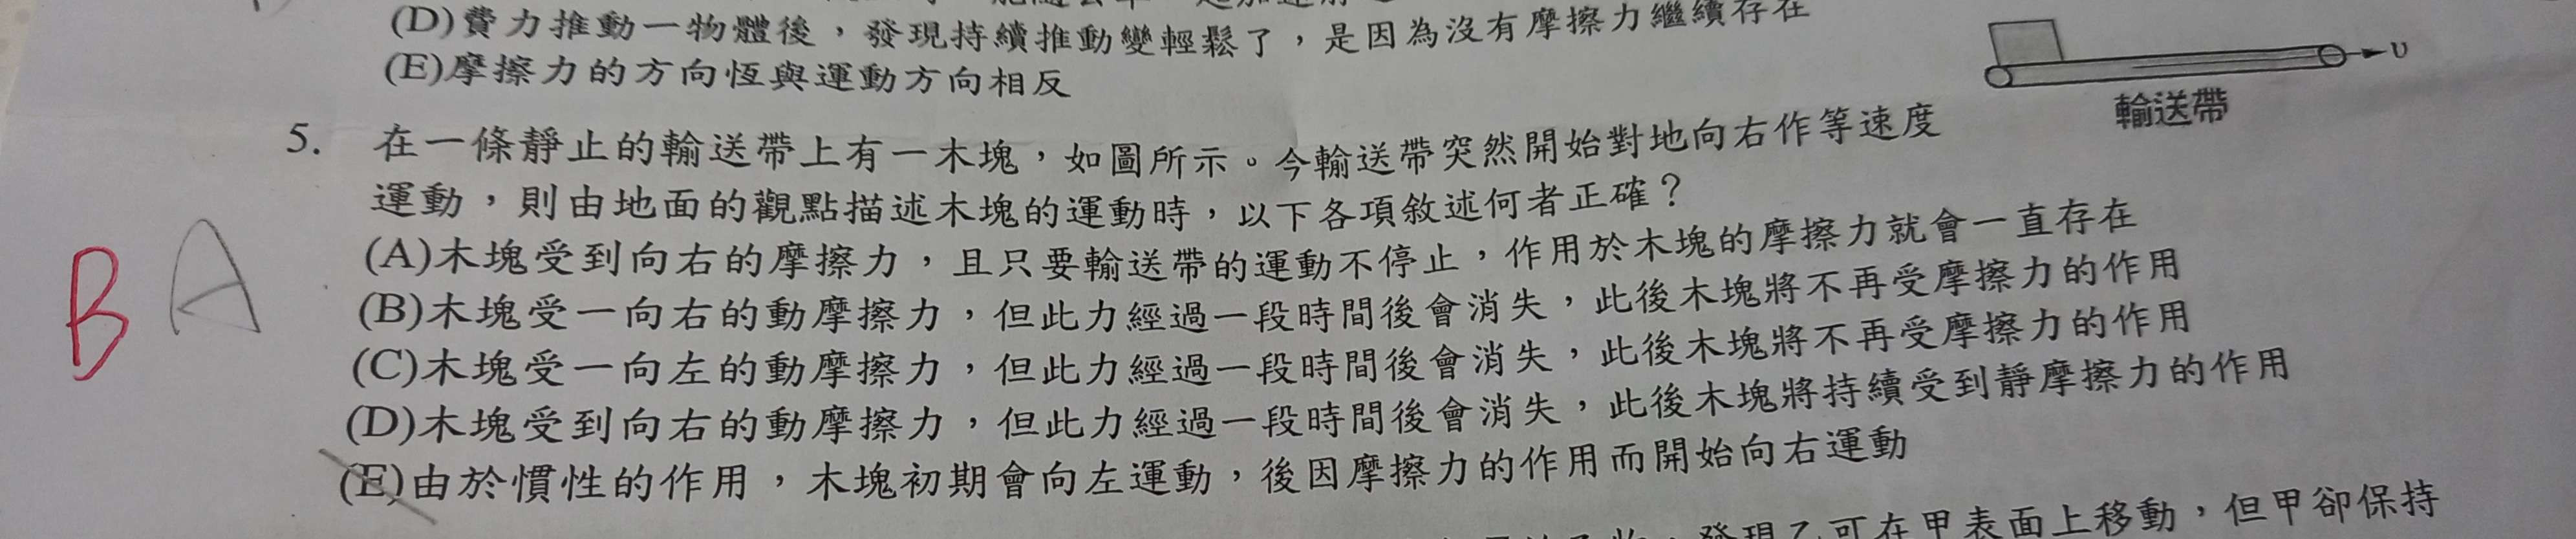 (D)費力推動一物體後，發現持續推動變輕鬆了，是因為沒有摩擦力繼續存在
(E)摩擦力的方向恆與運動方向相反
υ
輸送帶
5. 在一條靜止的輸送帶上有一木塊，如圖所示。今輸送帶突然開始對地向右作等速度
運動，則由地面的觀點描述木塊的運動時，以下各項敘述何者正確？
(A)木塊受到向右的摩擦力，且只要輸送帶的運動不停止，作用於木塊的摩擦力就會一直存在
B A
(B)木塊受一向右的動摩擦力，但此力經過一段時間後會消失，此後木塊將不再受摩擦力的作用
(C)木塊受一向左的動摩擦力，但此力經過一段時間後會消失，此後木塊將不再受摩擦力的作用
(D)木塊受到向右的動摩擦力，但此力經過一段時間後會消失，此後木塊將持續受到靜摩擦力的作用
(E)由於慣性的作用，木塊初期會向左運動，後因摩擦力的作用而開始向右運動
發現乙可在甲表面上移動，但甲卻保持